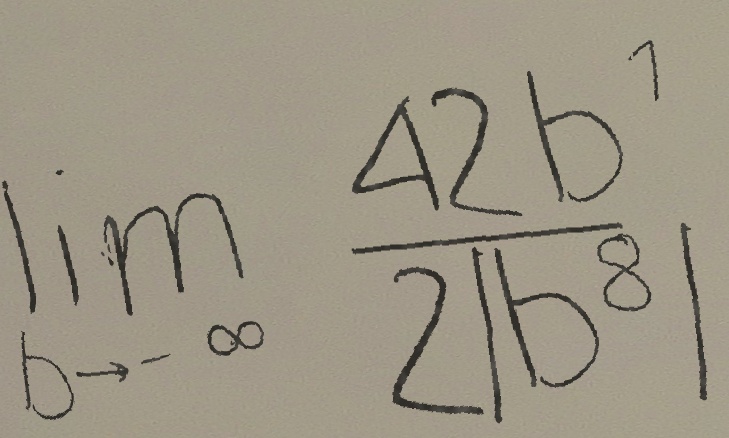 lim b→-∞ 42b^1 / 2|b^8|